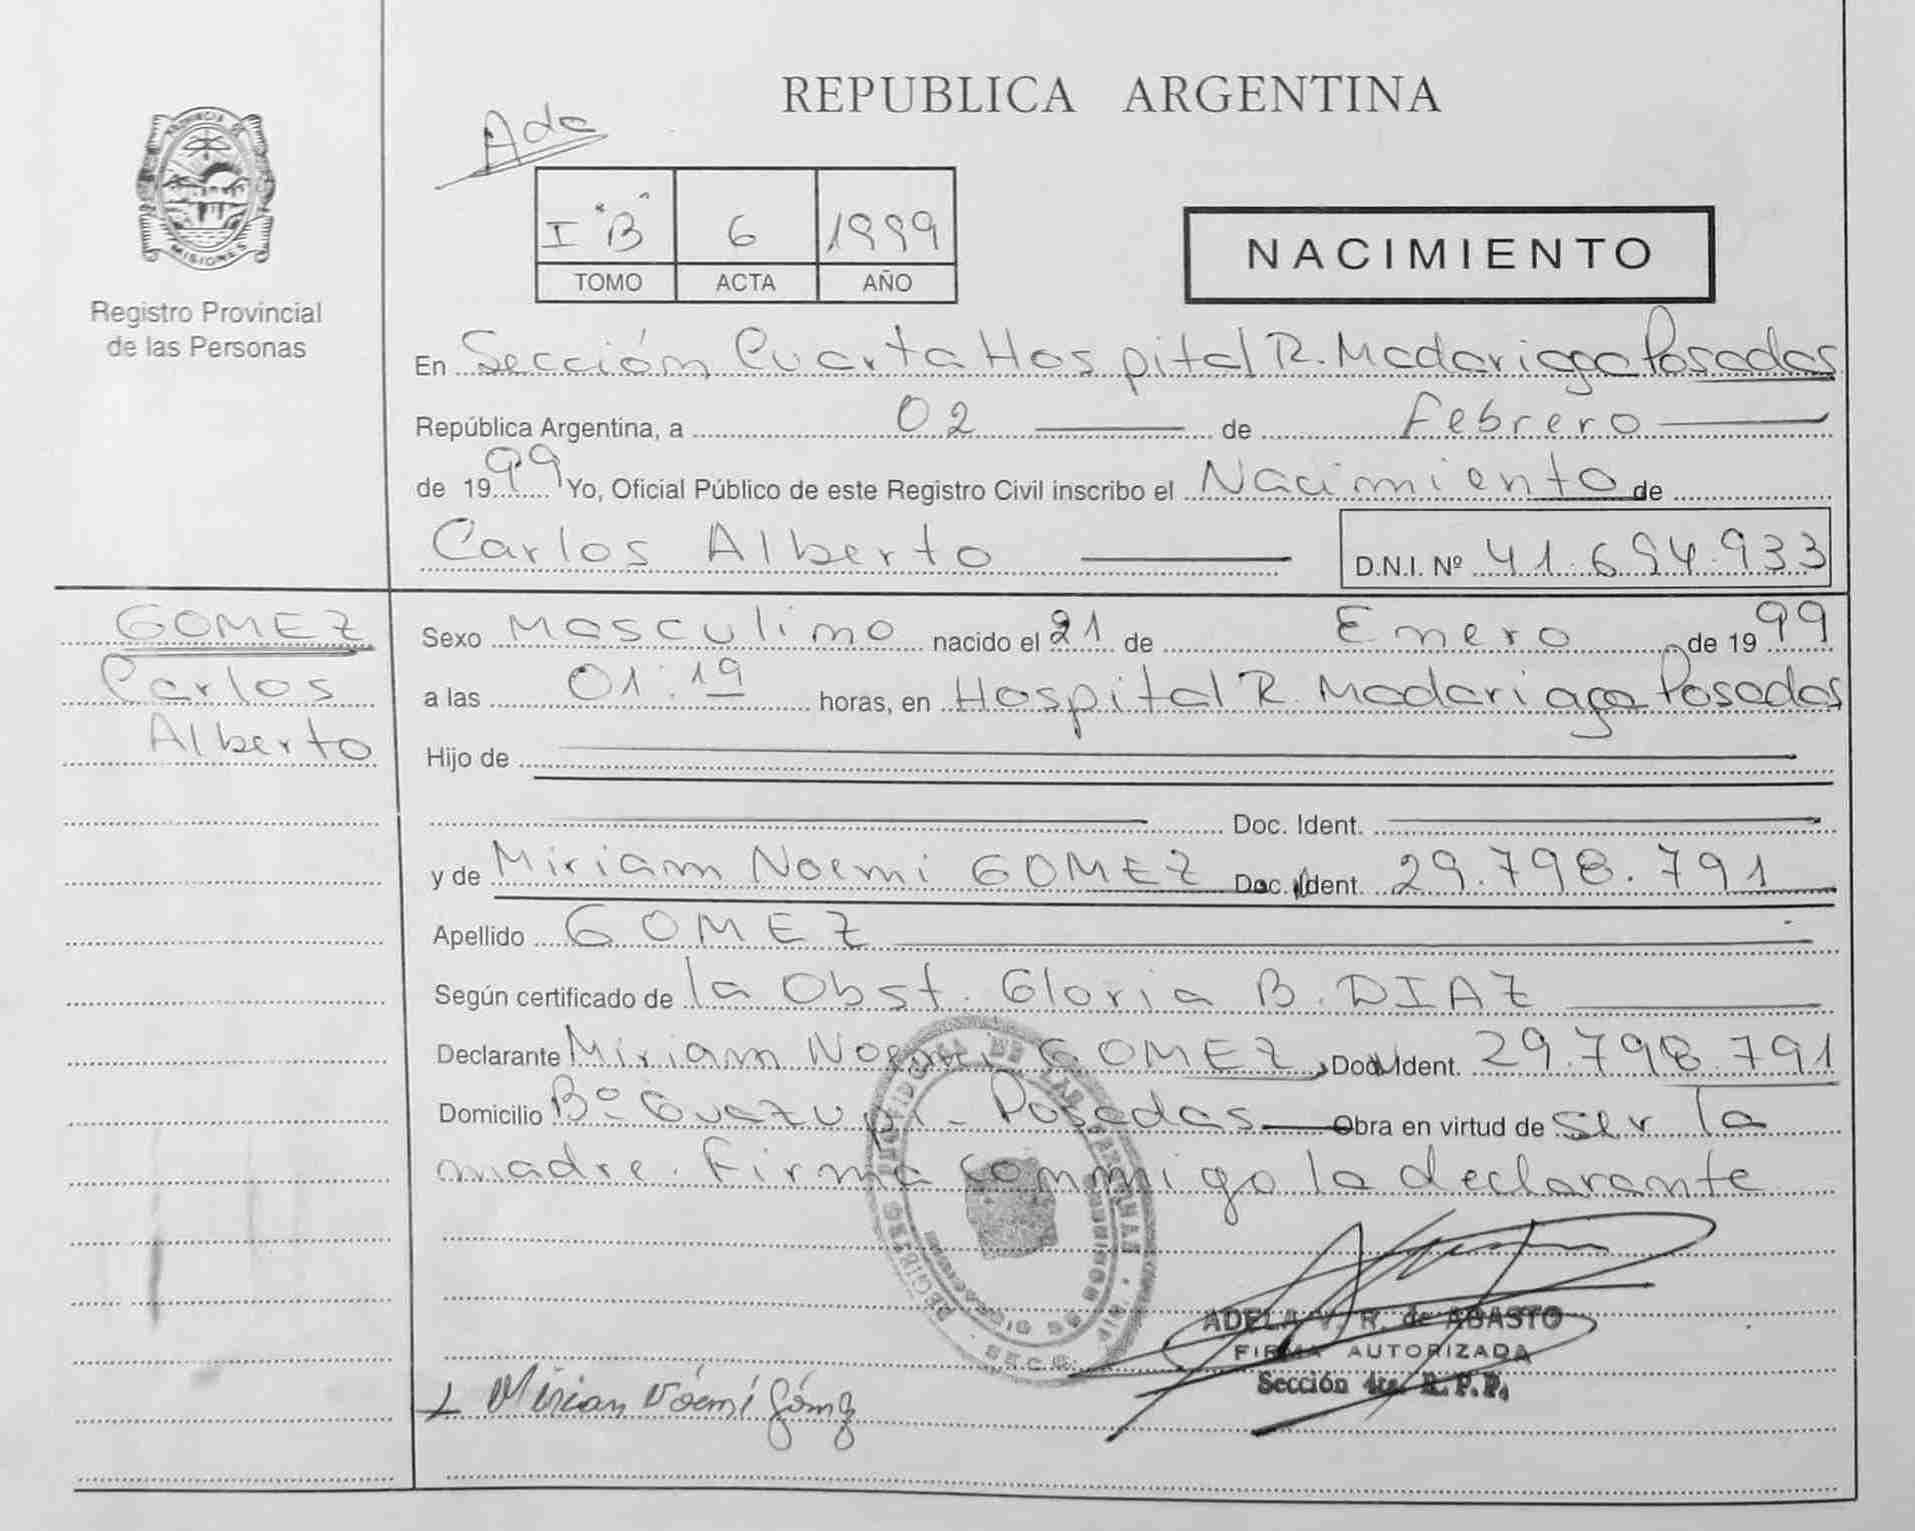 REPUBLICA ARGENTINA
PROVINCIA DE
MISIONES
Registro Provincial
de las Personas
I "B" 6 1999
TOMO ACTA AÑO
NACIMIENTO
En Sección Cuarta Hospital R. Madariaga Posadas
República Argentina, a 02 de Febrero
de 1999 Yo, Oficial Público de este Registro Civil inscribo el Nacimiento de
Carlos Alberto D.N.I. Nº 41.694.933
GOMEZ
Carlos
Alberto
Sexo Masculino nacido el 21 de Enero de 1999
a las 01:19 horas, en Hospital R. Madariaga Posadas
Hijo de
Doc. Ident.
y de Miriam Noemi GOMEZ Doc. Ident. 29.798.791
Apellido GOMEZ
Según certificado de la Obst. Gloria B. DIAZ
Declarante Miriam Noemi GOMEZ, Doc. Ident. 29.798.791
Domicilio Bº Guazupi - Posadas Obra en virtud de ser la
madre. Firma conmigo la declarante
REGISTRO PROVINCIAL DE LAS PERSONAS
MISIONES
ADELA V. R. de ABASTO
FIRMA AUTORIZADA
Sección 4ta. R. P. P.
Mirian Noemi Gómez